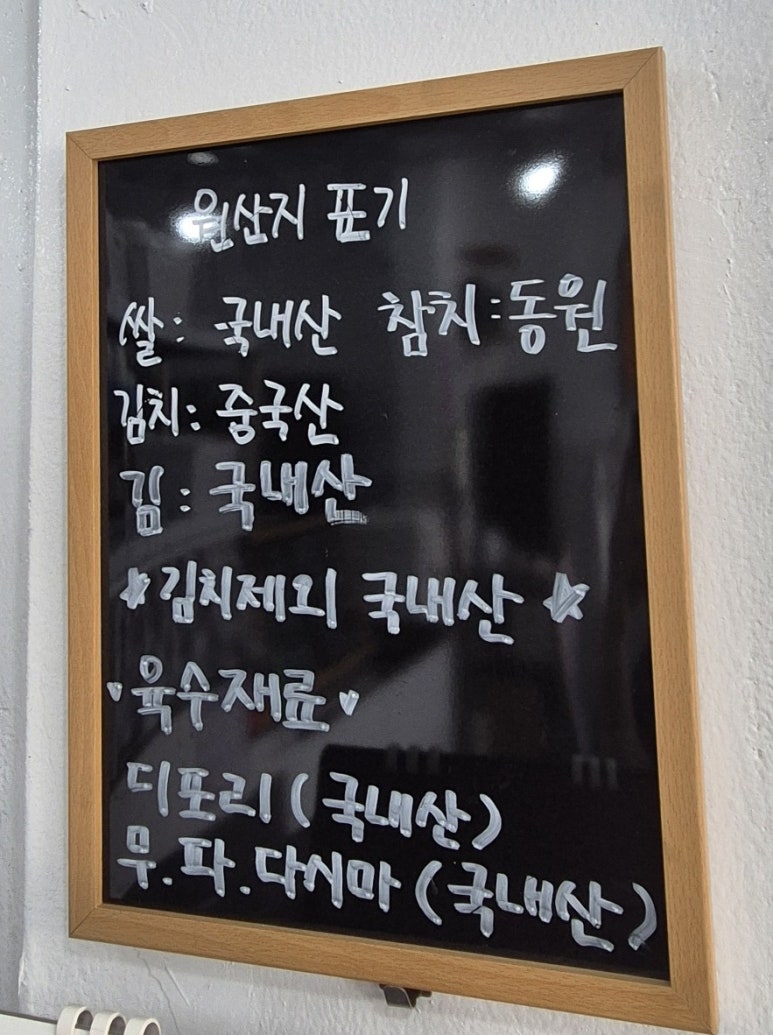 원산지 표기
쌀: 국내산 참치:동원
김치: 중국산
김: 국내산
☆김치제외 국내산☆
♥육수재료♥
디포리(국내산)
무.파.다시마(국내산)